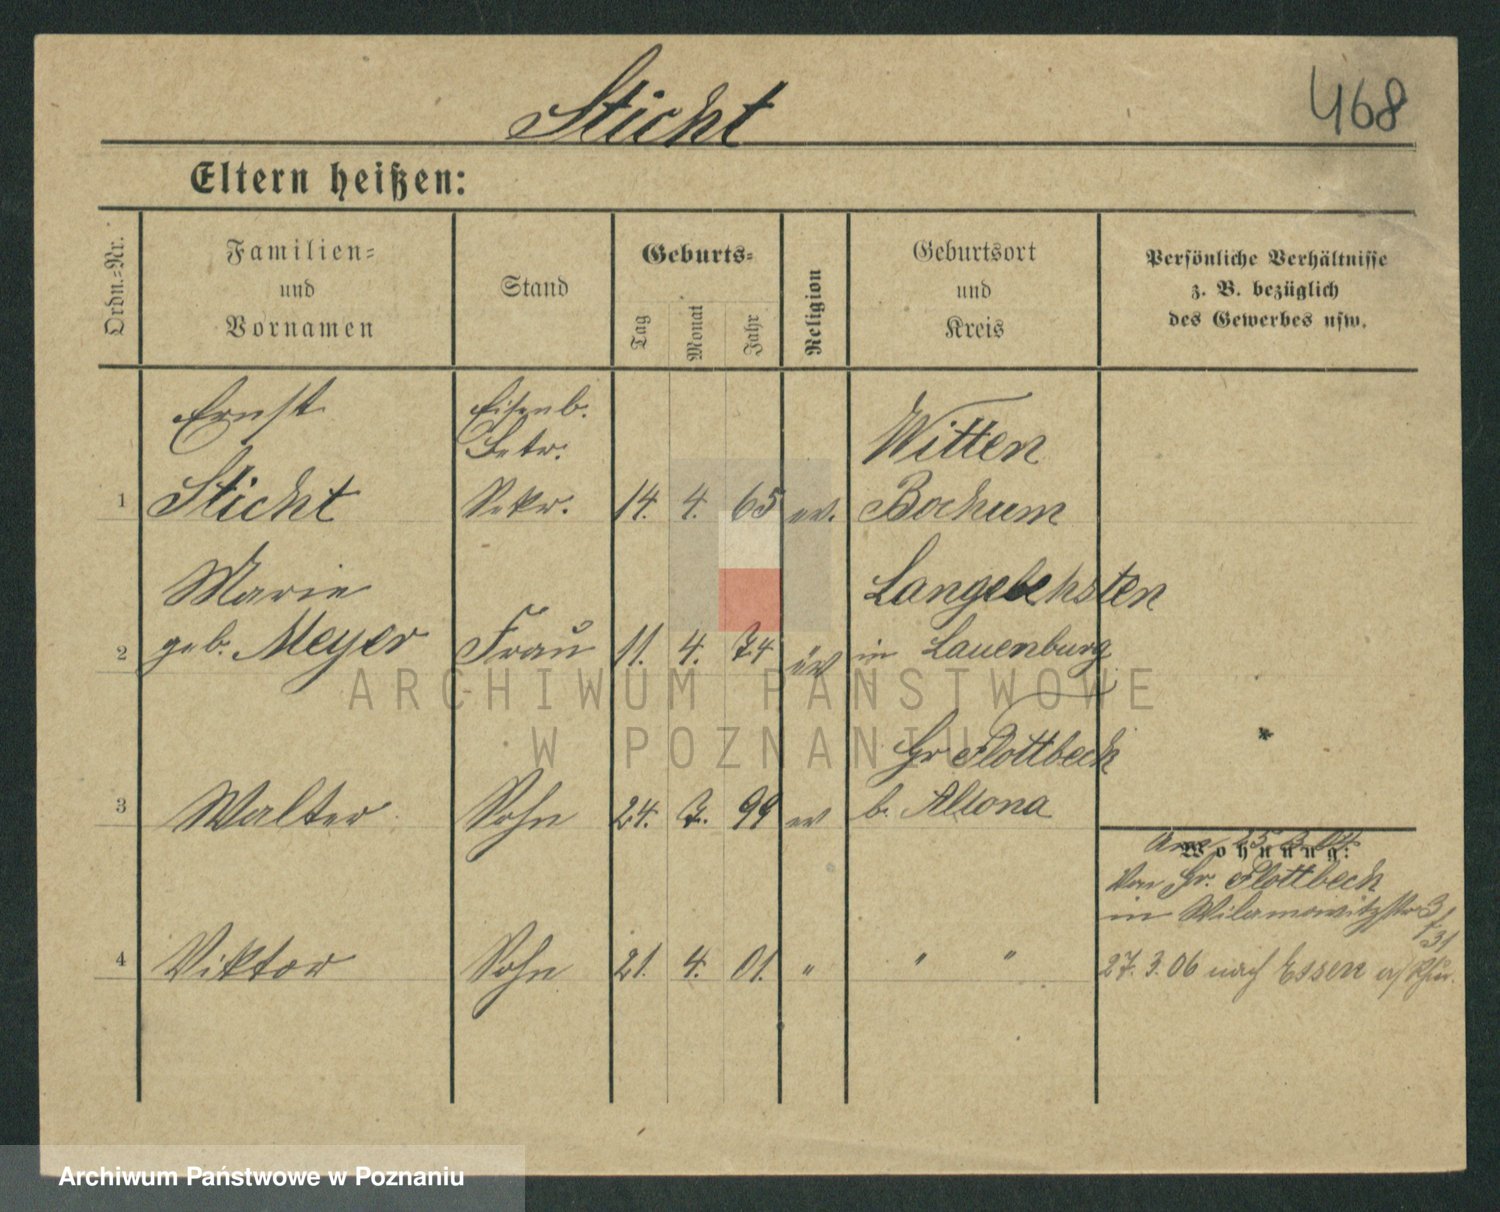 Sticht
468
Eltern heißen:
Ordn.=Nr.
Familien=
und
Vornamen
Stand
Geburts=
Tag
Monat
Jahr
Religion
Geburtsort
und
Kreis
Persönliche Verhältnisse
z. B. bezüglich
des Gewerbes usw.
Ernst
Eisenb.
Betr.
Witten
1 Sticht Sekr. 14. 4. 65 ev. Bochum
Marie
Langelehsten
2 geb. Meyer Frau 11. 4. 74 ev in Lauenburg
Gr Flottbeck
3 Walter Sohn 24. 7. 99 ev b. Altona
Wohnung:
Von Gr. Flottbeck
in Wilamowitzstr 3
31
4 Viktor Sohn 21. 4. 01. " " "
27. 3. 06 nach Essen a/ Ruhr.
ARCHIWUM PAŃSTWOWE
W POZNANIU
Archiwum Państwowe w Poznaniu